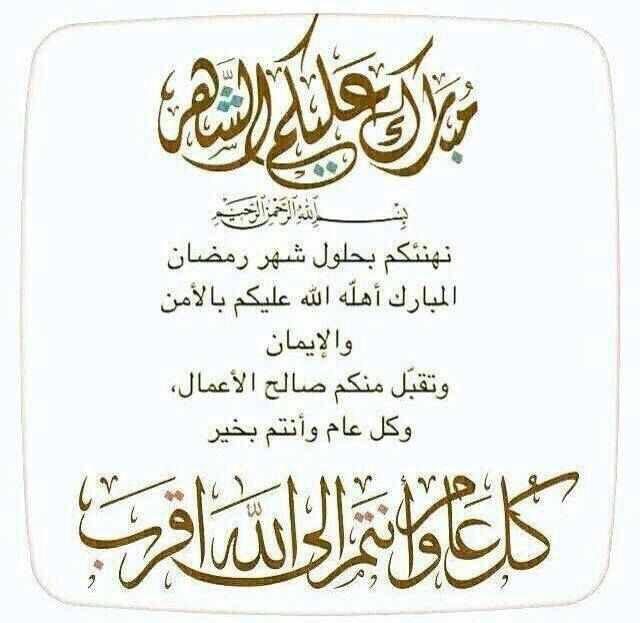 مبارك عليكم الشهر
بسم الله الرحمن الرحيم
نهنئكم بحلول شهر رمضان
المبارك أهلّه الله عليكم بالأمن
والإيمان
وتقبّل منكم صالح الأعمال،
وكل عام وأنتم بخير
كل عام وأنتم الى الله اقرب